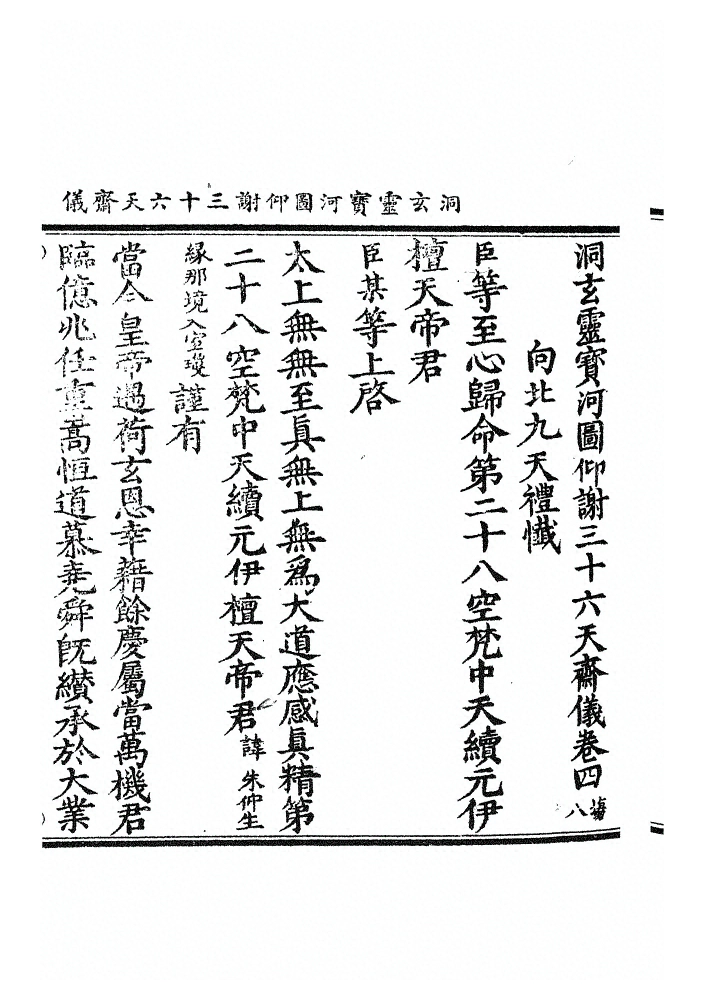 洞玄靈寳河圖仰謝三十六天齋儀
洞玄靈寳河圖仰謝三十六天齋儀卷四 八
向北九天禮懺
臣等至心歸命第二十八空梵中天續元伊
檀天帝君
臣某等上啓
太上無無至眞無上無爲大道應感眞精第
二十八空梵中天續元伊檀天帝君諱朱仲生
緣那境入室璇謹有
當今皇帝過荷玄恩幸藉餘慶屬當萬機君
臨億兆任重嵩恒道慕堯舜旣纉承於大業